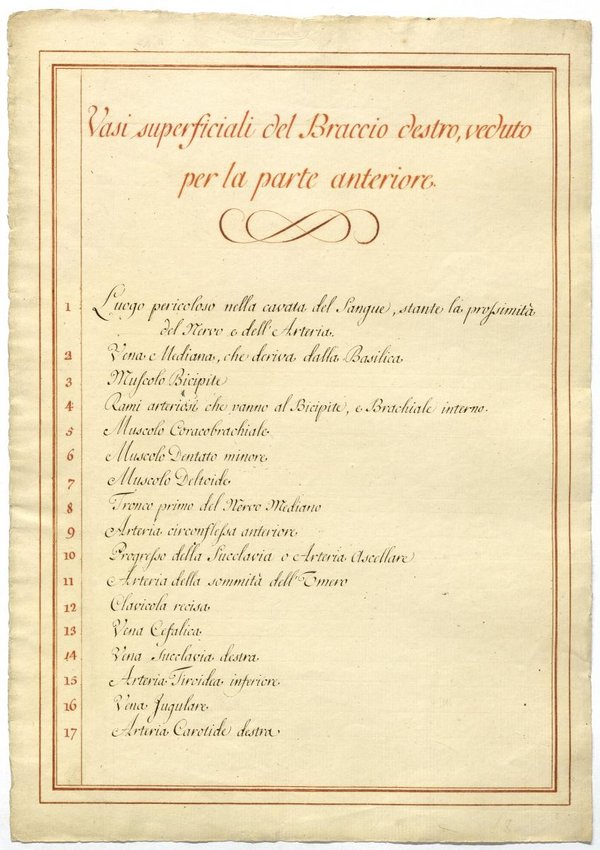 Vasi superficiali del Braccio destro, veduto
per la parte anteriore.
1 Luogo pericoloso nella cavata del Sangue, stante la prossimità
del Nervo e dell'Arteria.
2 Vena Mediana, che deriva dalla Basilica
3 Muscolo Bicipite
4 Rami arteriosi che vanno al Bicipite, e Brachiale interno.
5 Muscolo Coracobrachiale
6 Muscolo Dentato minore
7 Muscolo Deltoide
8 Tronco primo del Nervo Mediano
9 Arteria circonflessa anteriore
10 Progresso della Succlavia o Arteria Ascellare
11 Arteria della sommità dell'Omero
12 Clavicola recisa
13 Vena Cefalica
14 Vena Succlavia destra
15 Arteria Tiroidea inferiore
16 Vena Jugulare
17 Arteria Carotide destra